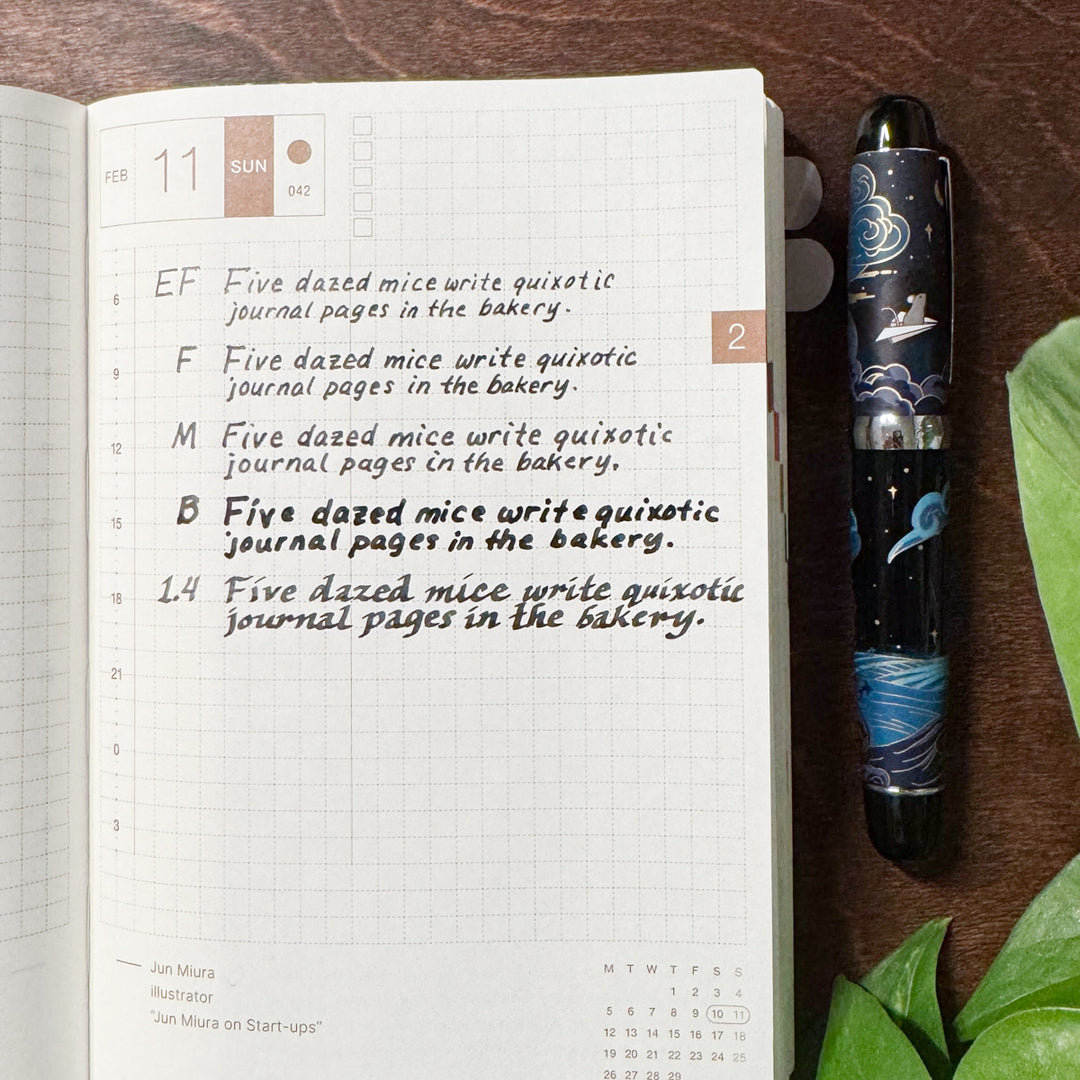 FEB 11 SUN 042
6 EF Five dazed mice write quixotic
journal pages in the bakery.
2
9 F Five dazed mice write quixotic
journal pages in the bakery.
12 M Five dazed mice write quixotic
journal pages in the bakery.
15 B Five dazed mice write quixotic
journal pages in the bakery.
18 1.4 Five dazed mice write quixotic
journal pages in the bakery.
21
0
3
Jun Miura
illustrator
"Jun Miura on Start-ups"
M T W T F S S
1 2 3 4
5 6 7 8 9 10 11
12 13 14 15 16 17 18
19 20 21 22 23 24 25
26 27 28 29